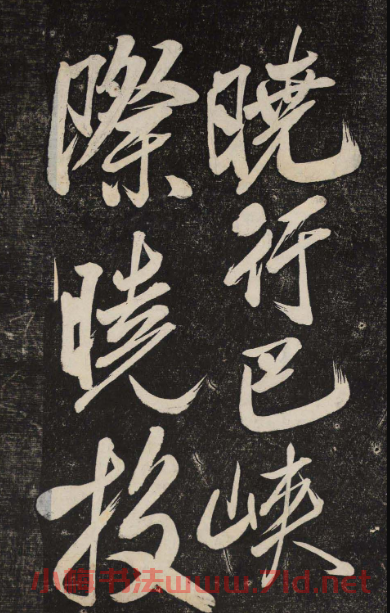 曉行巴峽
際曉投
书法www.7ld.net